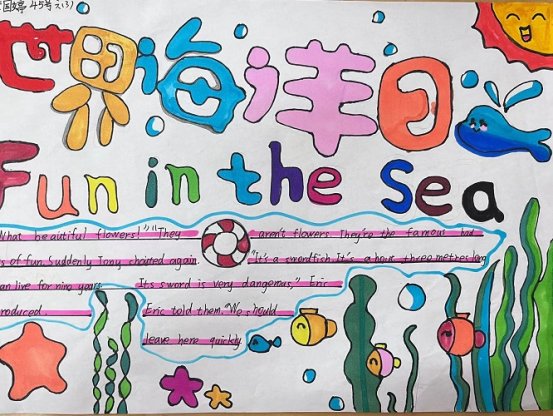 国婷 45号
世界海洋日
Fun in the Sea
What beautiful flowers!" "They aren't flowers. They're the famous
s of fun. Suddenly Tony shouted again. "It's a swordfish. It's about three metres long
an live for nine years. Its sword is very dangerous," Eric
roduced. Eric told them. "We should
leave here quickly.